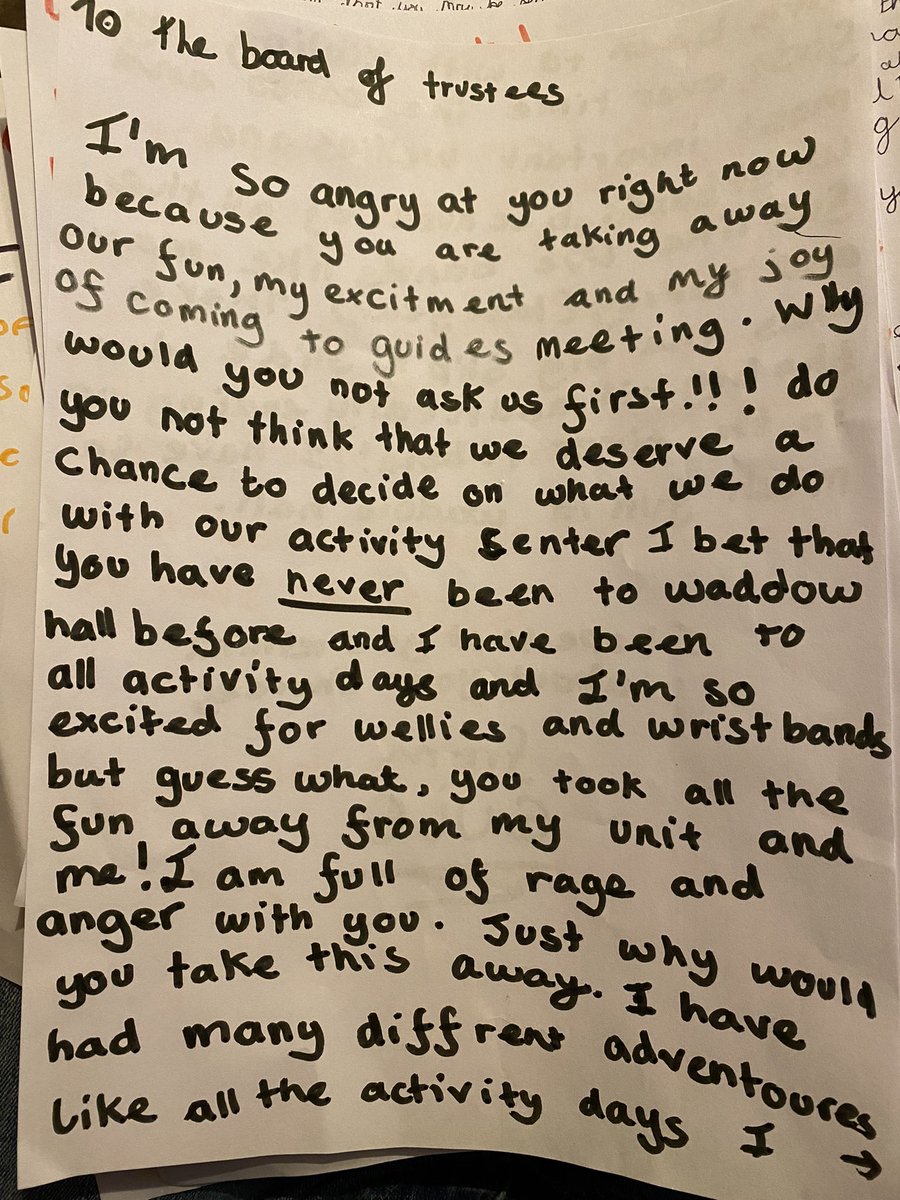 To the board of trustees
I'm so angry at you right now
because you are taking away
our fun, my excitment and my joy
of coming to guides meeting. Why
would you not ask us first!!! do
you not think that we deserve a
chance to decide on what we do
with our activity senter I bet that
you have never been to waddow
hall before and I have been to
all activity days and I'm so
excited for wellies and wristbands
but guess what, you took all the
fun away from my unit and
me! I am full of rage and
anger with you. Just why would
you take this away. I have
had many diffrent adventoures
like all the activity days I →